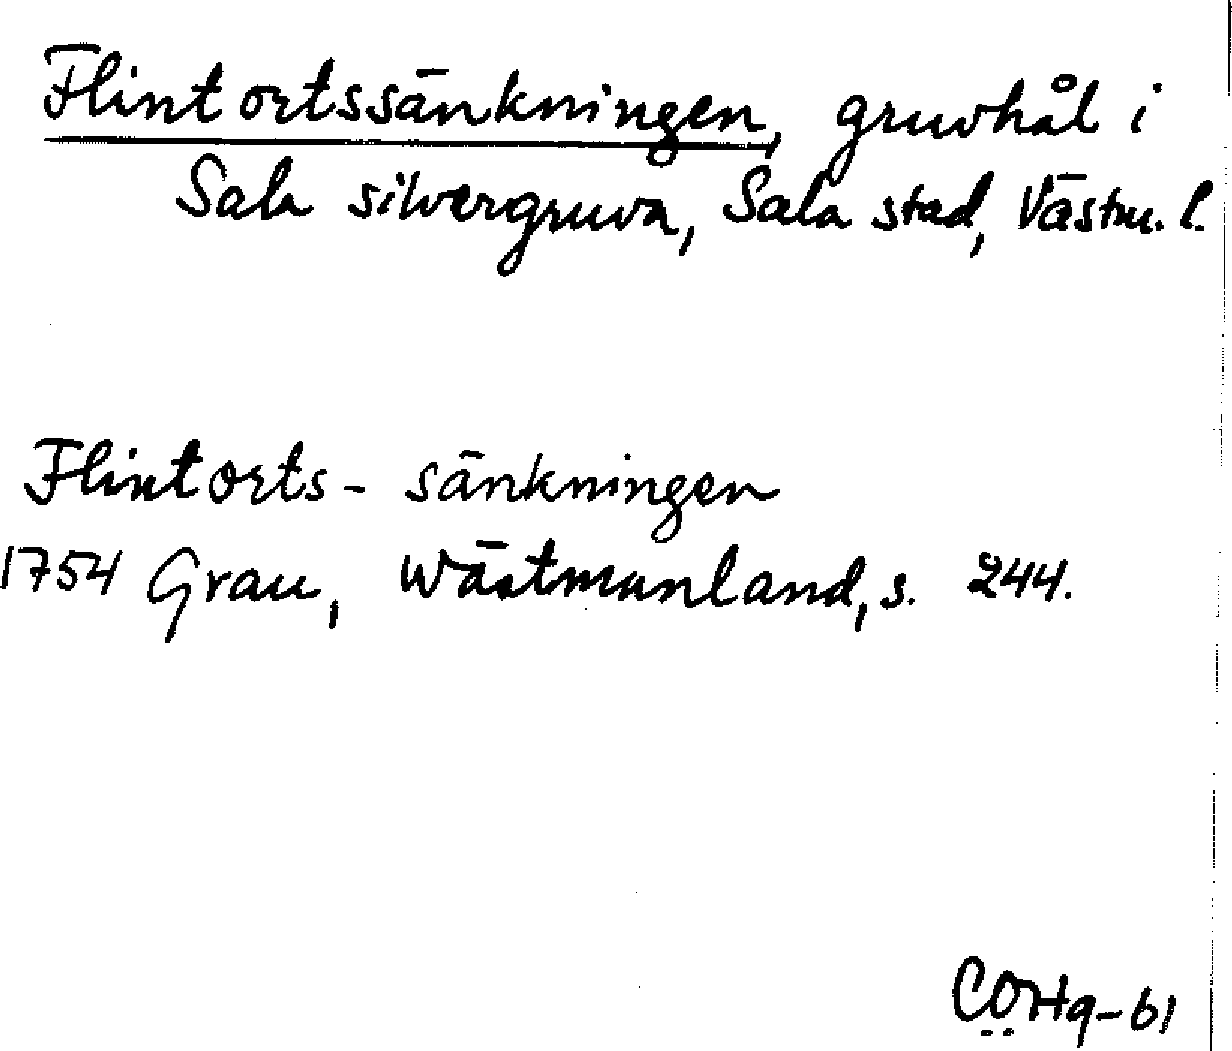 Flintortssänkningen, gruvhål i
Sala silvergruva, Sala stad, Västm. l.
Flintorts - sänkningen
1754 Grau, Wästmanland, s. 244.